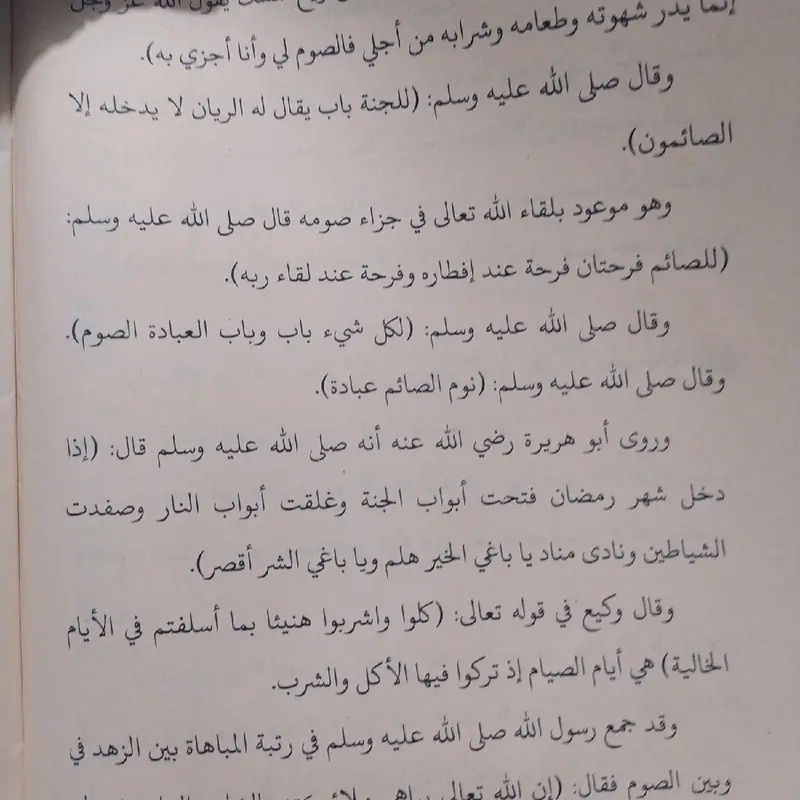 إنما يذر شهوته وطعامه وشرابه من أجلي فالصوم لي وأنا أجزي به).
وقال صلى الله عليه وسلم: (للجنة باب يقال له الريان لا يدخله إلا
الصائمون).
وهو موعود بلقاء الله تعالى في جزاء صومه قال صلى الله عليه وسلم:
(للصائم فرحتان فرحة عند إفطاره وفرحة عند لقاء ربه).
وقال صلى الله عليه وسلم: (لكل شيء باب وباب العبادة الصوم).
وقال صلى الله عليه وسلم: (نوم الصائم عبادة).
وروى أبو هريرة رضي الله عنه أنه صلى الله عليه وسلم قال: (إذا
دخل شهر رمضان فتحت أبواب الجنة وغلقت أبواب النار وصفدت
الشياطين ونادى مناد يا باغي الخير هلم ويا باغي الشر أقصر).
وقال وكيع في قوله تعالى: (كلوا واشربوا هنيئا بما أسلفتم في الأيام
الخالية) هي أيام الصيام إذ تركوا فيها الأكل والشرب.
وقد جمع رسول الله صلى الله عليه وسلم في رتبة المباهاة بين الزهد في
وبين الصوم فقال: (إن الله تعالى